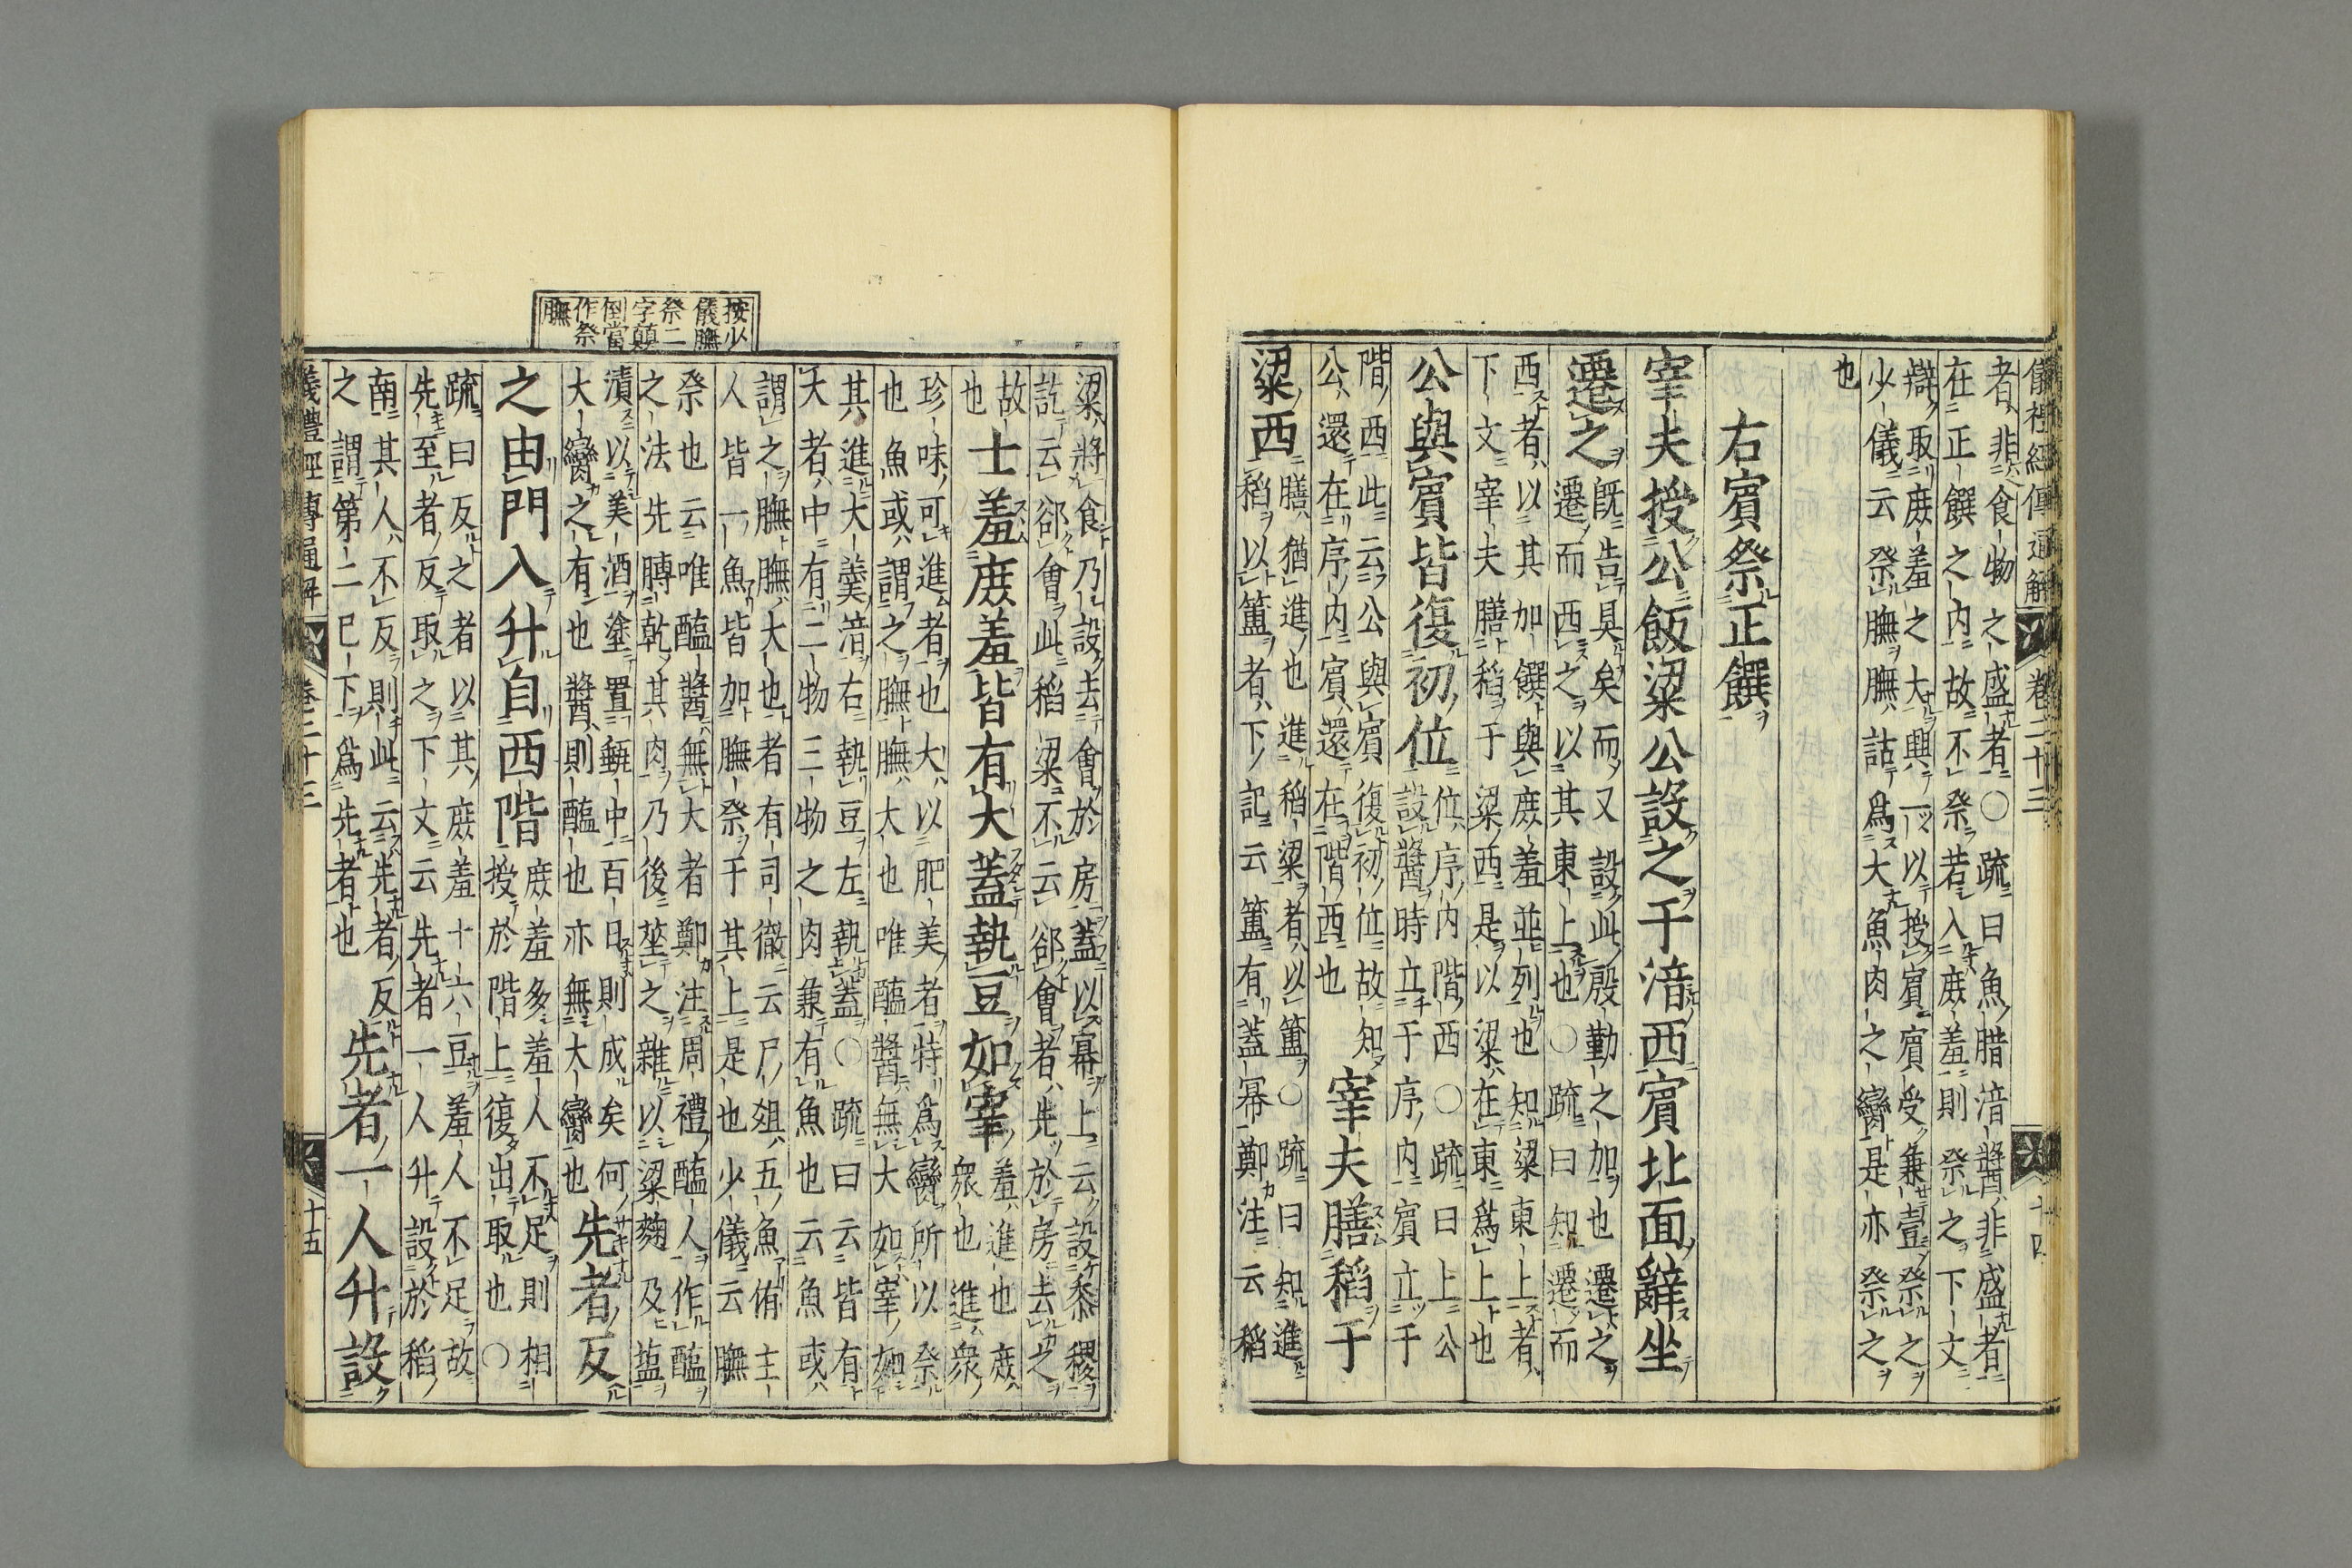 儀禮經傳通解 卷二十三 十四
者非食物之盛者○疏曰魚腊湆醬非盛者
在正饌之內故不祭若入庶羞則祭之下文
辯取庶羞之大興一以授賓賓受兼壹祭之
少儀云祭膴膴詁爲大魚肉之臠是亦祭之
也
右賓祭正饌
宰夫授公飯粱公設之于湆西賓北面辭坐
遷之
既告具矣而又設此殷勤之加也遷之
遷而西之以其東上也○疏曰知遷而
西者以其加饌與庶羞並列也知粱東上者
下文宰夫膳稻于粱西是以粱在東爲上也
公與賓皆復初位
位序內階西○疏曰上公
設醬時立于序內賓立于
階西此云公與賓復初位故知
公還在序內賓還在階西也
宰夫膳稻于
粱西
膳猶進也進稻粱者以簠○疏曰知進稻
稻以簠者下記云簠有蓋冪鄭注云稻
粱將食乃設去會於房蓋以冪上云設黍稷
訖云郤會此稻粱不云郤會者先於房去之
故
也
士羞庶羞皆有大蓋執豆如宰
羞進也庶
衆也進衆
珍味可進者也大以肥美者特爲臠所以祭
也魚或謂之膴膴大也唯醢醬無大如宰如
其進大羹湆右執豆左執蓋○疏曰云皆有
大者中有二物三物之肉兼有魚也云魚或
謂之膴膴大也者有司徹云尸俎五魚侑主
人皆一魚皆加膴祭于其上是也少儀云膴
祭也云唯醢醬無大者鄭注周禮醢人作醢
之法先膊乾其肉乃後莝之雜以粱麴及塩
漬以美酒塗置甀中百日則成矣何
大臠之有也醬則醢也亦無大臠也
先者反
之由門入升自西階
庶羞多羞人不足則相
授於階上復出取也○
疏曰反之者以其庶羞十六豆羞人不足故
先至者反取之下文云先者一人升設於稻
南其人不反則此云先者反
之謂第二已下爲先者也
先者一人升設
儀禮經傳通解 卷二十三 十五
按少
儀膴
祭二
字顛
倒當
作祭
膴